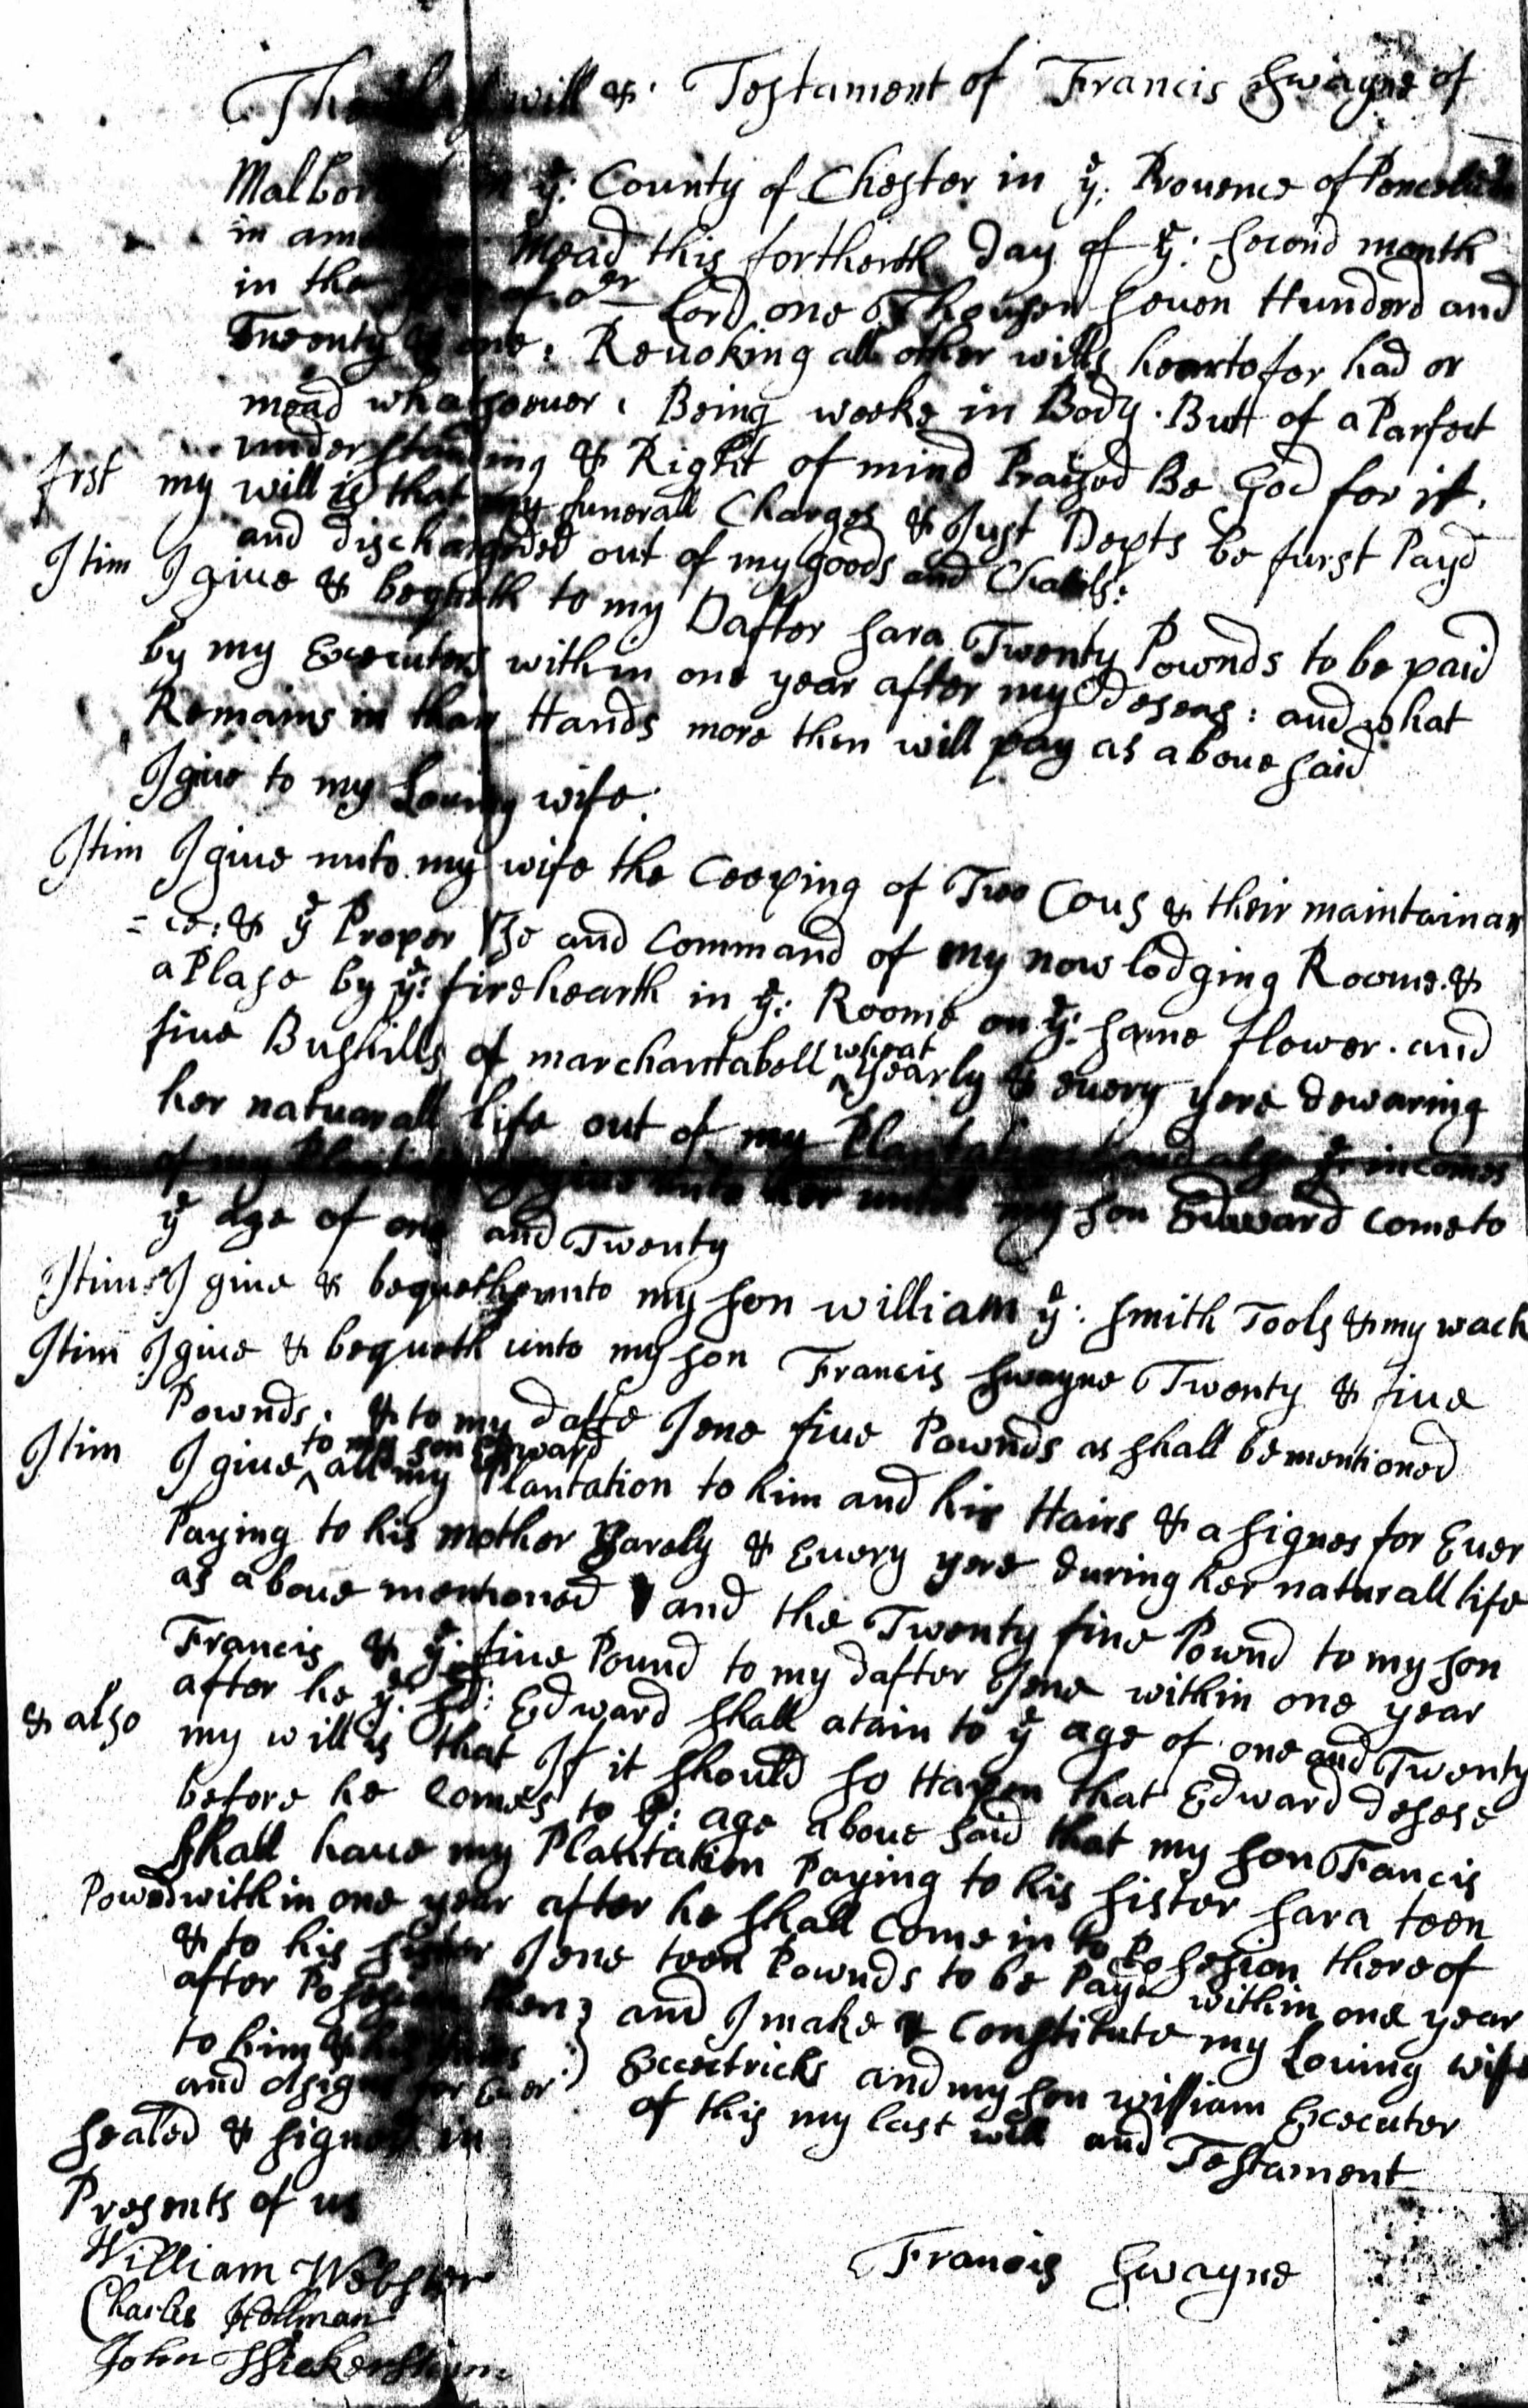 The last will &. Testament of Francis Swayne of
Malbor in ye: County of Chester in ye: Prouence of
in Mead this forthenth Day of ye: second month
in the of ouer Lord one Thousen seuen Hunderd and
Tweenty & one: Reuoking all other wills heartofor had or
mead whatsoeuer. Being weeke in Body. Butt of a Parfect
understanding & Right of mind Praised Be God for it.
frst my will is that my funerall Charges & Just Depts be furst Payd
and dischargeded out of my goods and Chatels:
Itim I giue & bequeth to my Dafter sara Twenty Pownds to be paid
by my Executers within one year after my Deseas: and what
Remains in thair Hands more then will pay as aboue said
I giue to my Louing wife.
Itim I giue unto my wife the Ceeping of Two Cous & their maintainan
=ce: & ye Proper Use and Command of my now lodging Roome. &
a Plase by ye: firehearth in ye: Roome on ye: same flower. and
fiue Bushills of marchantabell ^wheat yearly & euery yere dewaring
her natuarall life out of my Plantation and also ye incomes
of my Plantation I giue unto her untill my son Edward come to
ye age of one and Twenty
Itim I giue & bequeth unto my son william ye: smith Tools & my wach
Itim I giue & bequeth unto my son Francis swayne Twenty & fiue
Pownds. & to my dafte Jene fiue Pownds as shall be mentioned
Itim I giue ^to my son Edward all my Plantation to him and his Hairs & asignes for Euer
Paying to his mother Yarely & Euery yere during her naturall life
as aboue mentioned and the Twenty fiue Pownd to my son
Francis & ye: fiue Pound to my dafter Jene within one year
after he ye: sd: Edward shall atain to ye age of one and Twenty
& also my will is that If it should so Hapen that Edward desese
before he comes to ye: age aboue said that my son Francis
shall haue my Plantation Paying to his sister sara teen
Pownd within one year after he shall Come in to Posesion thereof
& to his sister Jene teen Pownds to be Payd within one year
after Posesion then; and I make & Constitute my Louing wife
to him & his Executricks and my son william Excecuter
and asigns for Euer of this my last will and Testament
sealed & signed in
Presents of us
William Webster
Charles
John
Francis Swayne